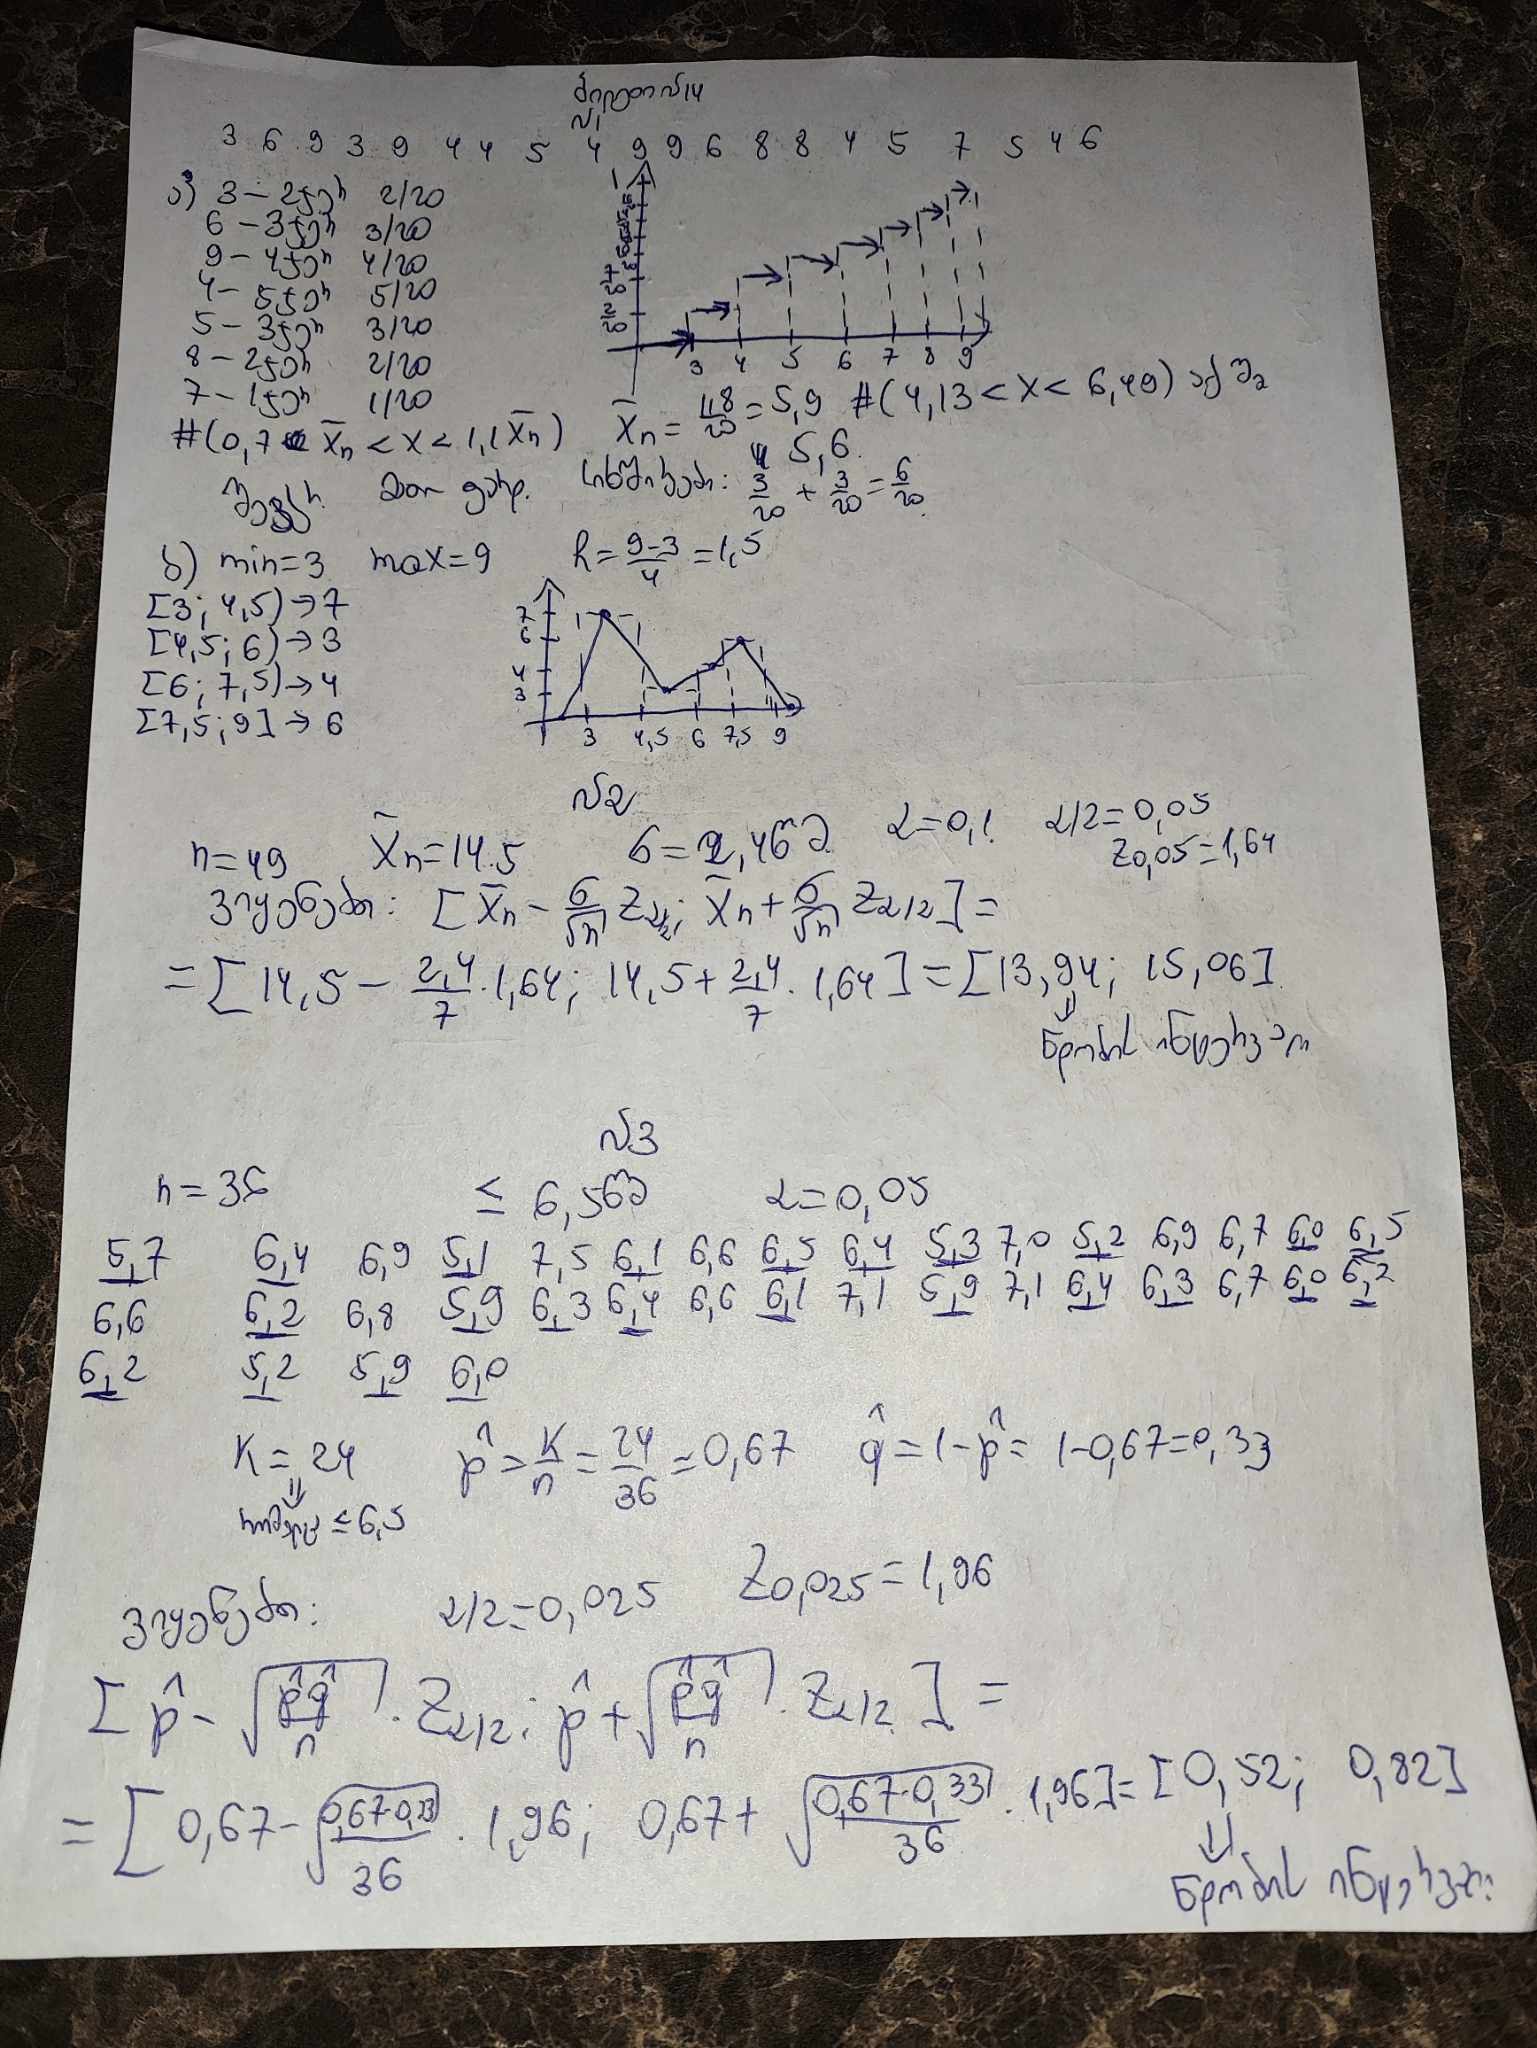 ბილეთი №14
№1
3 6 9 3 9 4 4 5 4 9 9 6 8 8 4 5 7 5 4 6
ა) 3 – 2ჯერ 2/20
6 – 3ჯერ 3/20
9 – 4ჯერ 4/20
4 – 5ჯერ 5/20
5 – 3ჯერ 3/20
8 – 2ჯერ 2/20
7 – 1ჯერ 1/20
1
7/20
2/20
3 4 5 6 7 8 9
#(0,7 x̄n < x < 1,1 x̄n) x̄n = 118/20 = 5,9 #(4,13 < x < 6,49) აქ შე
5,6
სიხშირეები: 3/20 + 3/20 = 6/20
ბ) min=3 max=9 h = (9-3)/4 = 1,5
[3; 4,5) → 7
[4,5; 6) → 3
[6; 7,5) → 4
[7,5; 9] → 6
7
6
4
3
3 4,5 6 7,5 9
№2
n=49 x̄n=14.5 σ=2,4სმ α=0,1 α/2=0,05
z0,05=1,64
ვიყენებთ: [x̄n – σ/√n zα/2; x̄n + σ/√n zα/2] =
= [14,5 – 2,4/7 · 1,64; 14,5 + 2,4/7 · 1,64] = [13,94; 15,06]
⇓
ნდობის ინტერვალი
№3
n = 36 ≤ 6,5სმ α=0,05
5,7 6,4 6,9 5,1 7,5 6,1 6,6 6,5 6,4 5,3 7,0 5,2 6,9 6,7 6,0 6,5
6,6 6,2 6,8 5,9 6,3 6,4 6,6 6,1 7,1 5,9 7,1 6,4 6,3 6,7 6,0 6,2
6,2 5,2 5,9 6,0
K = 24 p̂ = K/n = 24/36 = 0,67 q̂ = 1 – p̂ = 1 – 0,67 = 0,33
⇓
რომელიც ≤ 6,5
ვიყენებთ: α/2 = 0,025 z0,025 = 1,96
[p̂ – √(p̂q̂/n) · zα/2; p̂ + √(p̂q̂/n) · zα/2] =
= [0,67 – √(0,67·0,33/36) · 1,96; 0,67 + √(0,67·0,33/36) · 1,96] = [0,52; 0,82]
⇓
ნდობის ინტერვალი